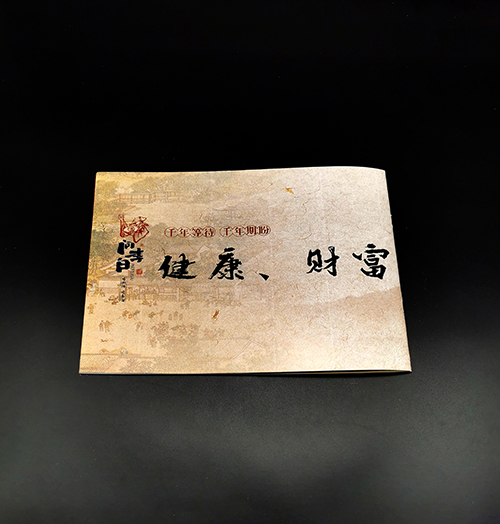 千年等待 千年期盼
健康、财富